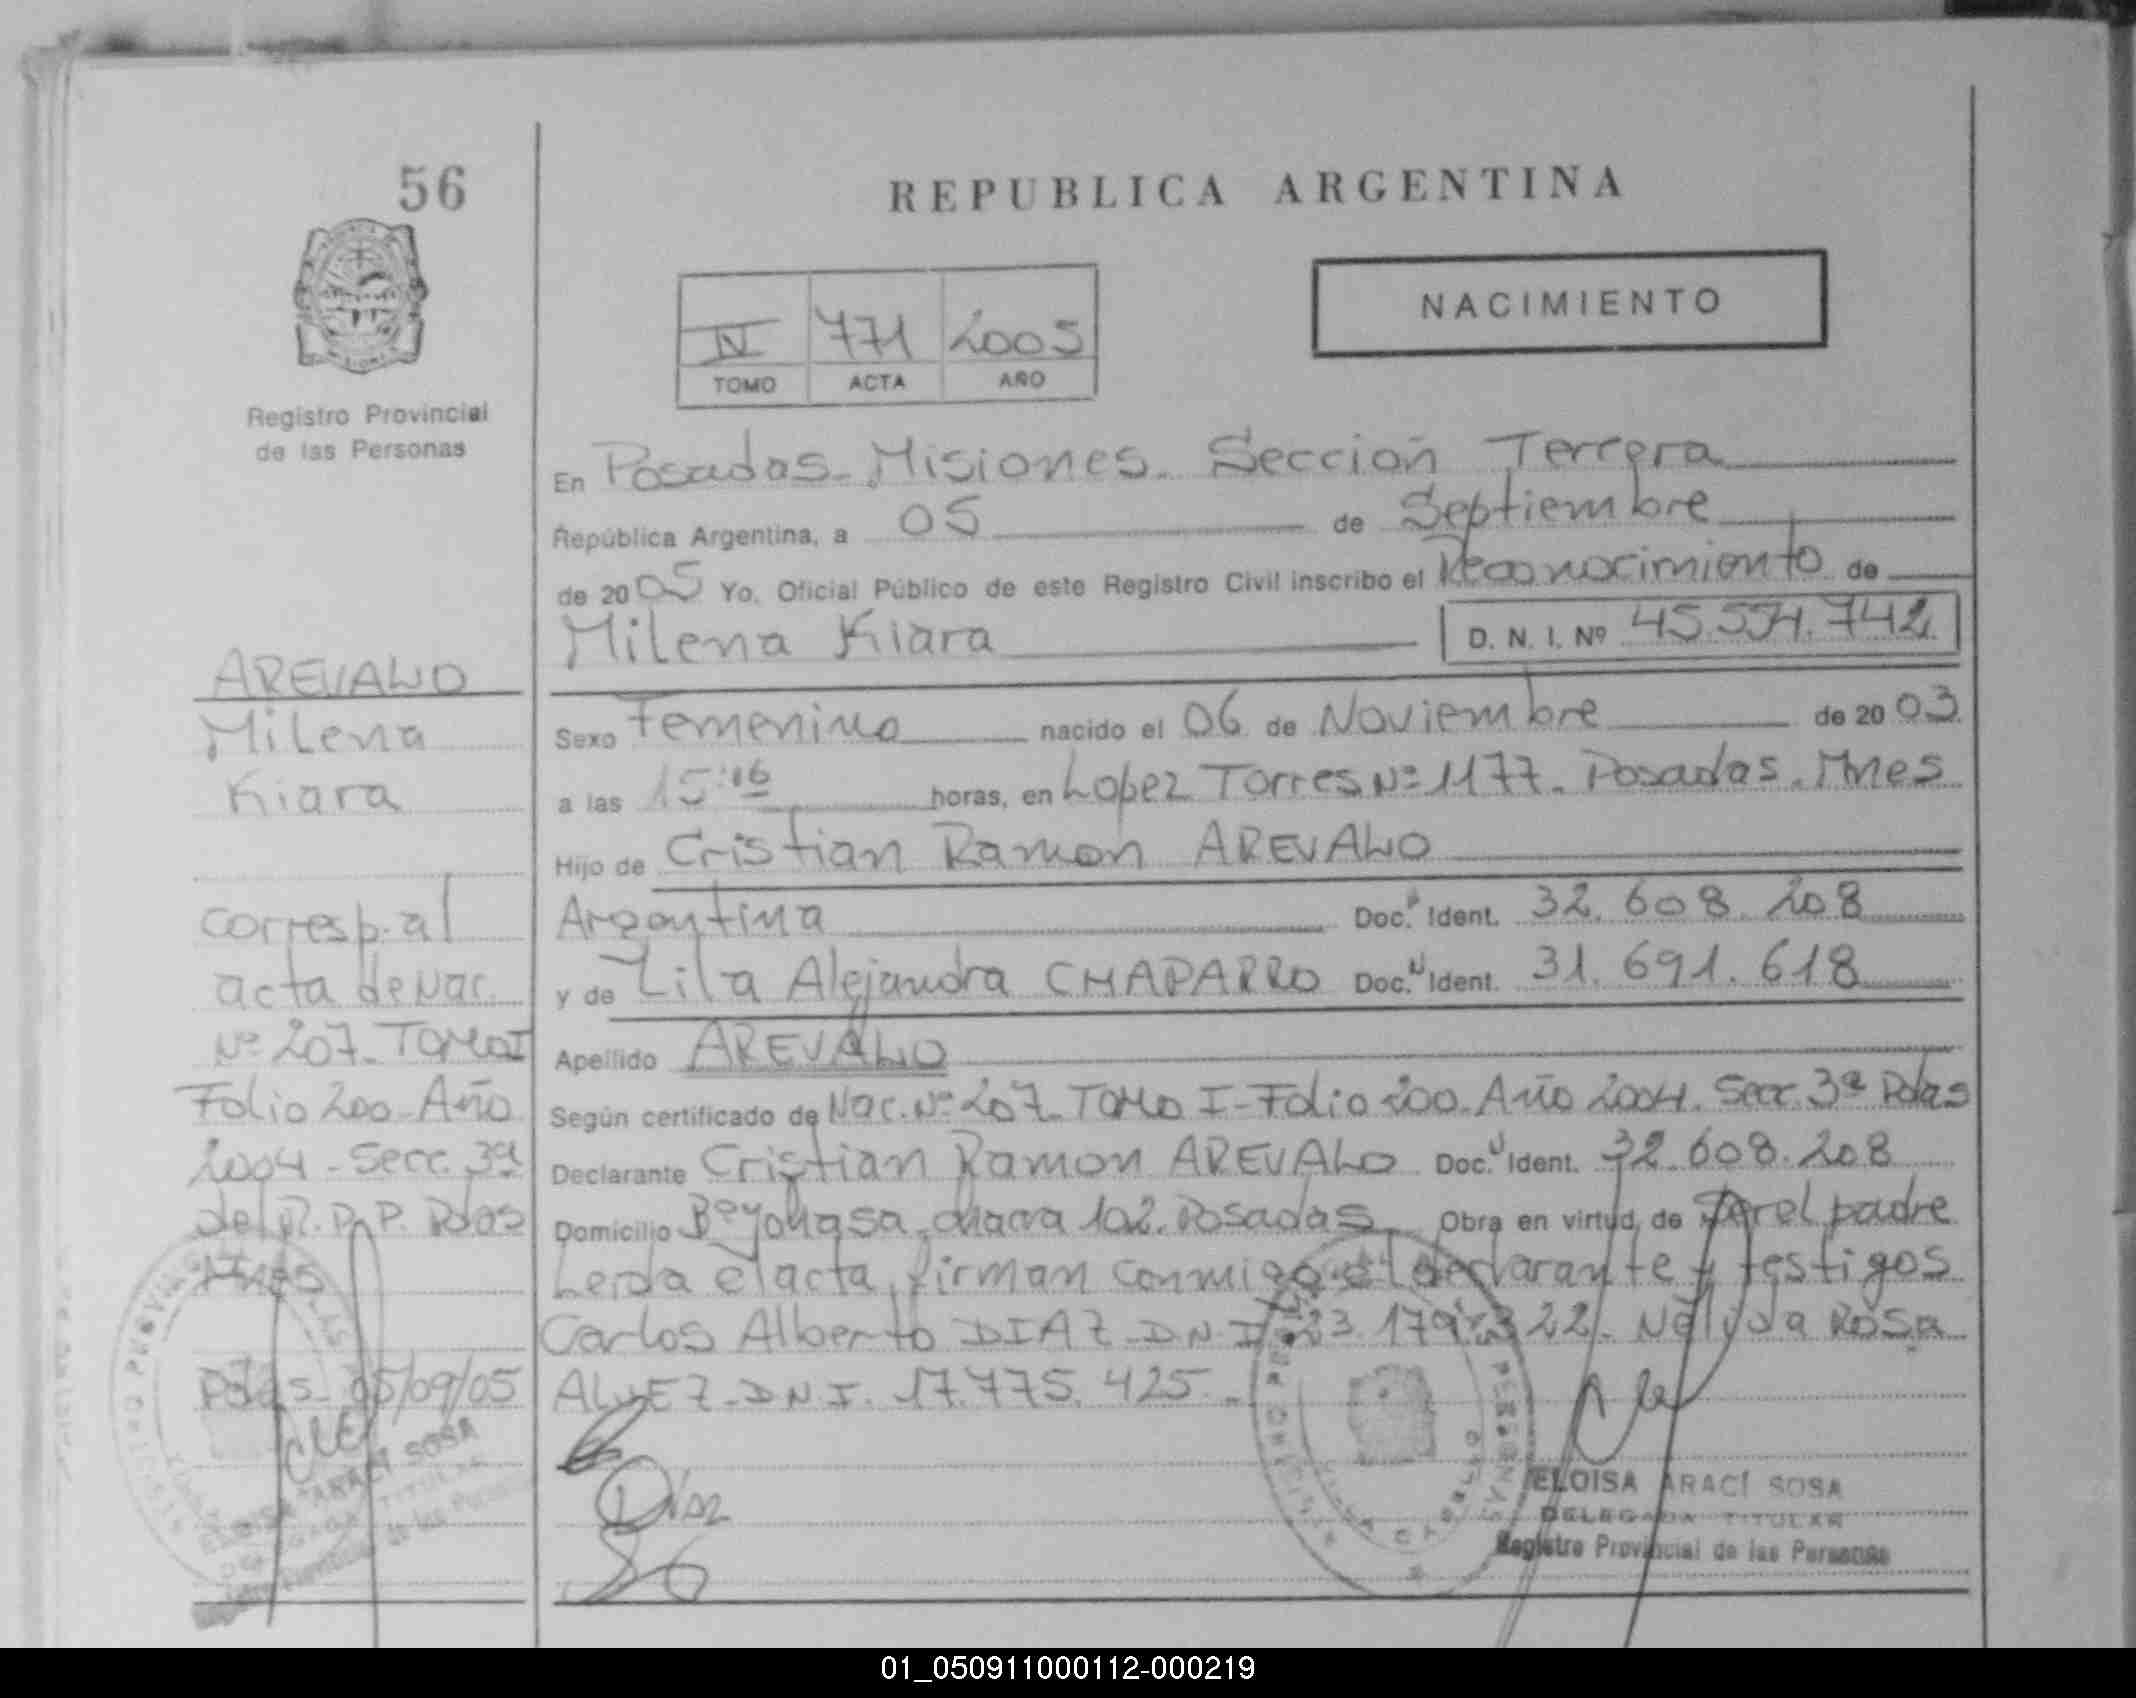 56
REPUBLICA ARGENTINA
NACIMIENTO
IV 771 2005
TOMO ACTA AÑO
Registro Provincial
de las Personas
En Posadas - Misiones - Sección Tercera
República Argentina, a 05 de Septiembre
de 2005 Yo, Oficial Público de este Registro Civil inscribo el Reconocimiento de
Milena Kiara D. N. I. Nº 45.554.742
Sexo Femenino nacido el 06 de Noviembre de 2003
a las 15:16 horas, en Lopez Torres Nº 1177 - Posadas - Mnes
Hijo de Cristian Ramon AREVALO
Argentina Doc. Ident. 32.608.208
y de Lila Alejandra CHAPARRO Doc. Ident. 31.691.618
Apellido AREVALO
Según certificado de Nac. Nº 207 - Tomo I - Folio 200 - Año 2004 - Secc. 3ª Pdas
Declarante Cristian Ramon AREVALO Doc. Ident. 32.608.208
Domicilio Bº Yohasa, chacra 102. Posadas Obra en virtud de Ser el padre
Leida el acta, firman conmigo el declarante y testigos
Carlos Alberto DIAZ - D.N.I. 23.179.322 - Nelida Rosa
ALVEZ - D.N.I. 17.775.425 -
Diaz
ELOISA ARACÍ SOSA
DELEGADA TITULAR
Registro Provincial de las Personas
AREVALO
Milena
Kiara
Corresp. al
acta de Nac.
Nº 207 - Tomo I
Folio 200 - Año
2004 - Secc. 3ª
del R. P. P. Pdas
Mnes
Pdas - 05/09/05
ELOISA ARACÍ SOSA
DELEGADA TITULAR
01_050911000112-000219